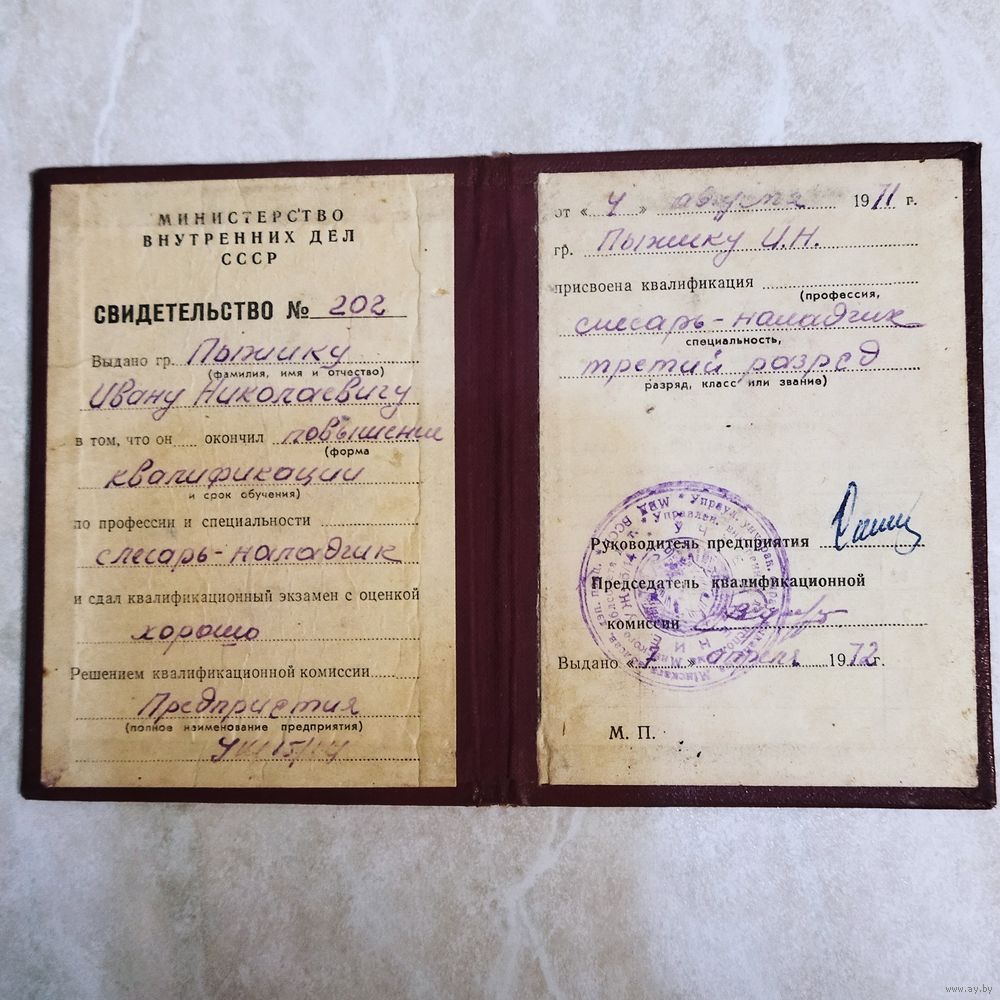 МИНИСТЕРСТВО
ВНУТРЕННИХ ДЕЛ
СССР
СВИДЕТЕЛЬСТВО № 202
Выдано гр. Пыжику
(фамилия, имя и отчество)
Ивану Николаевичу
в том, что он окончил повышение
(форма
квалификации
и срок обучения)
по профессии и специальности
слесарь-наладчик
и сдал квалификационный экзамен с оценкой
хорошо
Решением квалификационной комиссии
Предприятия
(полное наименование предприятия)
от « 4 » августа 1971 г.
гр. Пыжику И.Н.
присвоена квалификация
(профессия,
слесарь-наладчик
специальность,
третий разряд
разряд, класс или звание)
Руководитель предприятия
Председатель квалификационной
комиссии
Выдано « 7 » апреля 1972 г.
М. П.
www.ay.by